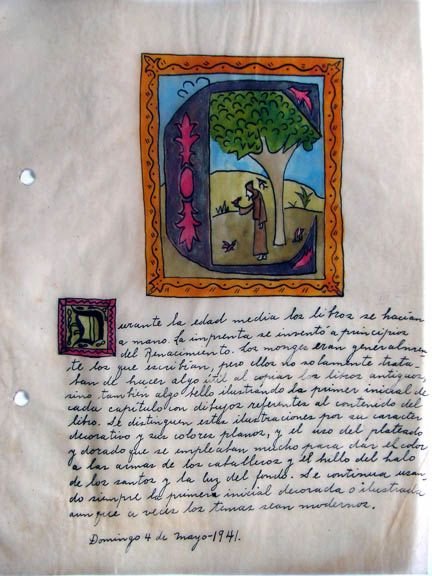 Durante la edad media los libros se hacían
a mano. La imprenta se inventó a principios
del Renacimiento. Los monges eran generalmen
te los que escribían, pero ellos no solamente trata-
ban de hacer algo útil al copiar los libros antiguos,
sino tambien algo bello ilustrando la primer inicial de
cada capítulo con dibujos referentes al contenido del
libro. Se distinguen estas ilustraciones por su caracter
decorativo y sus colores planos, y el uso del plateado
y dorado que se empleaban mucho para dar el color
a las armas de los caballeros y el brillo del halo
de los santos y la luz del fondo. Se continua usan-
do siempre la primera inicial decorada o ilustrada
aunque a veces los temas sean modernos.
Domingo 4 de Mayo-1941.